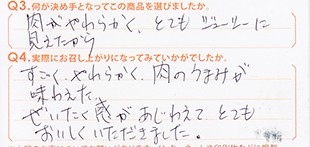 Q3.何が決め手となってこの商品を選びましたか。
肉がやわらかく、とてもジューシーに
見えたから
Q4.実際にお召し上がりになってみていかがでしたか。
すごく、やわらかく、肉のうまみが
味わえた。
ぜいたく感があじわえて、とても
おいしくいただきました。